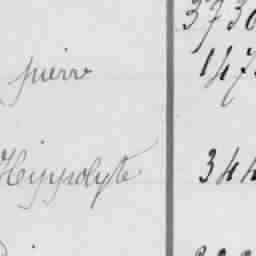 373
pierre 147
Hippolyte 344